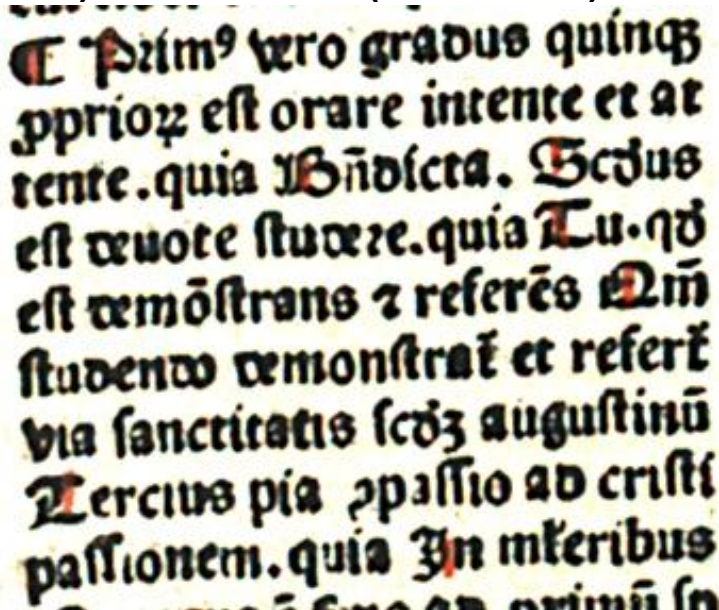 ¶ Primꝰ vero gradus quinqꝫ
ꝓprioꝝ est orare intente et at
tente. quia Bn̄dicta. Scd̓us
est deuote studere. quia Tu. qd̓
est demōstrans ⁊ referēs Qm̄
studendo demonstrat̄ et refert̄
via sanctitatis scd̓ꝫ augustinū
Tercius pia ꝯpassio ad cristi
passionem. quia In ml̓eribus